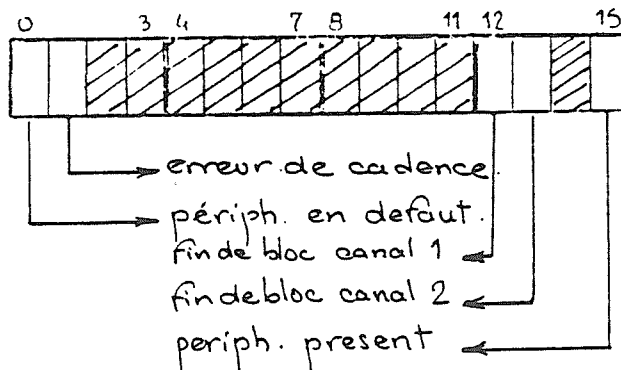 0 3 4 7 8 11 12 15
erreur de cadence.
périph. en defaut.
fin de bloc canal 1
fin de bloc canal 2
periph. present